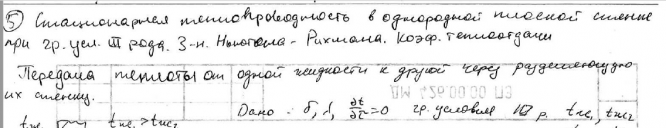 5) Стационарная теплопроводность в однородной плоской стенке
при гр. усл. III рода. З-н. Ньютона-Рихмана. Коэф. теплоотдачи
Передача теплоты от одной жидкости к другой через разделяющую
их стенку.
Дано: δ, λ, ∂t/∂τ=0 гр. условия III р. tж₁, tж₂
tж₁ > tж₂